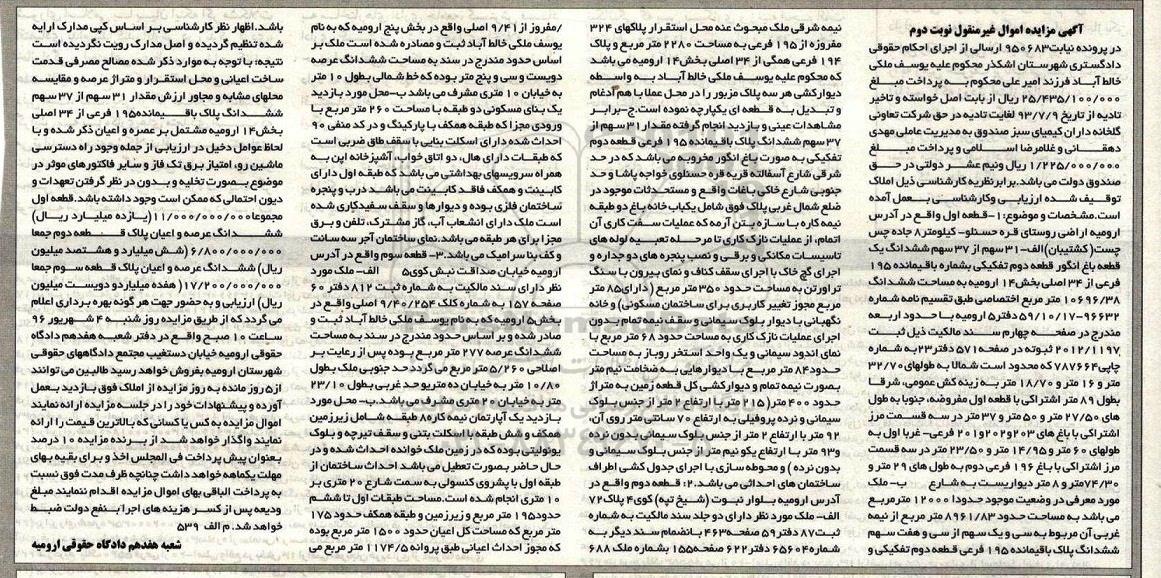 آگهی مزایده اموال غیرمنقول نوبت دوم
در پرونده نیابت ۹۵۰۶۸۳ ارسالی از اجرای احکام حقوقی
دادگستری شهرستان اشکذر محکوم علیه یوسف ملکی
خالط آبـاد فرزند امیر علی محکوم بـه پرداخت مبلغ
۲۵/۴۳۵/۱۰۰/۰۰۰ ریال از بابت اصل خواسته و تاخیر
تادیه از تاریخ ۹۳/۷/۹ لغایت تادیه در حق شرکت تعاونی
گلخانه داران کیمیای سبز صندوق به مدیریت عاملی مهدی
دهقـــانی و غلامرضا اســـلامی و پرداخت مبـــلغ
۱/۲۲۵/۰۰۰/۰۰۰ ریال ونیم عشـر دولتی در حــق
صندوق دولت می باشد.برابر نظریه کارشناسی ذیل املاک
توقیـف شده ارزیـابی وکارشنـاسی بــعمل آمده
است.مشخصات و موضوع: ۱-قطعه اول واقع در آدرس
ارومیه اراضی روستای قره حسنلو- کیلومتر۸ جاده چس
چست( کشتیبان)الف-۳۱ سهم از ۳۷ سهم ششدانگ یک
قطعه باغ انگور قطعه دوم تفکیکی بشماره باقیمانده ۱۹۵
فرعی از ۳۴ اصلی بخش ۱۴ ارومیه به مساحت ششدانگ
۱۰۶۹۶/۳۸ متر مربع اختصاصی طبق تقسیم نامه شماره
۹۶۶۳۲-۵۹/۱۰/۱۷ دفتر۵ ارومیه با حدود اربعه
مندرج در صفحه چهارم سند مالکیت ذیل ثبت
۲۰۱۲/۱۱۹۷ ثبوته در صفحه۵۷۱ دفتر۲۳به شماره
چاپی۷۸۷۶۶۴ که محدود است شمالا به طولهای ۳۲/۷۰
متر و ۱۶ متر و ۱۸/۷۰ متر بـه زینه کش عمومی، شرقـا
بطول ۸۹ متر اشتراکی با قطعه اول مفروضه، جنوبا به طول
های ۲۷/۵۰ متر و ۵۰ متر و ۳۷ متر در سه قسمت مرز
اشتراکی با باغ های ۲۰۳و۲۰۲و۲۰۱ فرعی- غربا اول به
طولهای ۶۰ متر و ۱۴/۹۵ متر و ۲۳/۵۰ متر در سه قسمت
مرز اشتراکی با باغ ۱۹۶ فرعی دوم به طول های ۲۹ متر و
۷۴/۳۰متر و ۸ متر دیواریست به شـارع ب- ملک
مورد معرفی در وضعیت موجود حدودا ۱۲۰۰۰ مترمربـع
می باشد به مساحت حدود ۸۹۶۱/۸۳ متر مربع از نیمه
غربی آن مربوط به سی و یک سهم از سی و هفت سهم
ششدانگ پلاک باقیمانده ۱۹۵ فرعی قطعه دوم تفکیکی و
نیمه شرقی ملک مبحوث عنه محل استقـرار پلاکهای ۳۲۴
مفروزه از ۱۹۵ فرعی به مساحت ۲۲۸۰ متر مربع و پلاک
۱۹۴ فرعی همگی از ۳۴ اصلی بخش۱۴ ارومیه می باشد
که محکوم علیه یوسـف ملکی خالط آبـاد بـه واسطه
دیوارکشی هر سه پلاک مزبور را در محل عملا با هم ادغام
و تبدیل بـه قطعه ای یکپارچه نموده است.ج-برابر
مشاهدات عینی و بازدید انجام گرفته مقدار ۳۱ سهم از
۳۷ سهم ششدانگ پلاک باقیمانده ۱۹۵ فرعی قطعه دوم
تفکیکی به صورت باغ انگور مخروبه می باشد که در حد
شرقی شارع آسفالته قریه قره حسنلوی خواجه پاشا و حد
جنوبی شارع خاکی باغات واقـع و مستحدثات موجود در
ضلع شمال غربی پلاک فوق شامل یکباب خانه باغ دو طبقه
نیمه کاره با سـازه بـتن آرمه که عملیات سفت کاری آن
اتمام، از عملیات نازک کاری تا مرحـله تعبیـه لوله های
تاسیسات مکانکی و برقی و نصب پنجره های دو جداره و
اجرای گچ خاک با اجرای سقف کناف و نمای بیرون با سنگ
تراورتن به مساحت حدود ۳۵۰ متر مربع ( دارای۸۵ متر
مربع مجوز تغییر کاربری برای ساختمان مسکونی) و خانه
نگهبانی با دیوار بلوک سیمانی و سقف نیمه تمام بدون
اجرای عملیات نازک کاری به مساحت حدود ۶۸ متر مربع با
نمای اندود سیمانی و یک واحد استخر روباز به مساحت
حدود۸۴ متر مربـع بـا دیوارهایی به ضخامت نیم متر
بصورت نیمه تمام و دیوارکشی کل قطعه زمین به متراژ
حدود ۴۰۰ متر( ۲۱۵ متر با ارتفاع ۲ متر از جنس بلوک
سیمانی و نرده پروفیلی به ارتفاع ۷۰ سانتی متر روی آن،
۹۲ متر با ارتفاع ۲ متر از جنس بلوک سیمانی بدون نرده
و۹۳ متر با ارتفاع یکو نیم متر از جنس بلوک سیمـانی و
بدون نرده) و محوطه سازی با اجرای جدول کشی اطراف
ساختمان های احداثی می باشد.۲: قطعه دوم واقع در
آدرس ارومیه بـلوار نبـوت (شیـخ تپه) کوی۴ پلاک۷۲
الف- ملک مورد نظر دارای دو جلد سند مالکیت به شماره
ثبت۸۷ دفتر۵۹ صفحه۴۶۳ بـانضمام سند دیگر به
شماره۶۵۶۰۴ دفتر۶۲۲ صفحه۱۵۵ بشماره ملک ۶۸۸
/مفروز از ۹/۴۱ اصلی واقع در بخش پنج ارومیه که به نام
یوسف ملکی خالط آباد ثبت و مصادره شده است ملک بر
اساس حدود مندرج در سند به مساحت ششدانگ عرصه
دویست و سی و پنج متر بوده که خط شمالی بطول ۱۰ متر
به خیابان ۱۰ متری مشرف می باشد ب-محل مورد بازدید
یک بنای مسکونی دو طبقه با مساحت ۲۶۰ متر مربع با
ورودی مجزا که طبقه همکف با پارکینگ و در کد منفی ۹۰
احداث شده دارای اسکلت بنایی با سقف طاق ضربی است
که طبقـات دارای هال، دو اتاق خواب، آشپزخانه اپن به
همراه سرویسهای بهداشتی می باشد که طبقه اول دارای
کابینت و همکف فاقد کابینت می باشد درب و پنجره
ساختمان فلزی بوده و دیوارها و سقف سفیدکاری شده
است ملک دارای انشعاب آب، گاز مشترک، تلفن و بـرق
مجزا برای هر طبقه می باشد. نمای ساختمان آجر سه سانت
و کف بنا سرامیک می باشد.۳- قطعه سوم واقع در آدرس
ارومیه خیابان صداقت نبش کوی۵ الف- ملک مورد
نظر دارای سند مالکیت به شماره ثبت ۸۱۲ دفتر ۶۰
صفحه ۱۵۷ به شماره کلک ۹/۴۰/۲۵۴ اصلی واقع در
بخش۵ ارومیه که به نام یوسـف ملکی خالط آباد ثبت و
صادر شده و بر اساس حدود مندرج در سند به مساحت
ششدانگ عرصه ۲۷۷ متر مربـع بـوده پس از رعایت بر
اصلاحی ۵/۲۶۰ متر مربع می گردد حد جنوبی ملک بطول
۱۰/۸۰ متر به خیابان ده متریو حد غربی بطول ۲۳/۱۰
متر به خیابان ۲۰ متری مشرف می باشد.ب- محل مورد
بازدید یک آپارتمان نیمه کاره۸ طبقـه شـامل زیرزمین
همکف و شش طبقه با اسکلت بتنی و سقف تیرچه و بلوک
یونولیتی بوده که در زمین ملک خوانده احداث شده و در
حال حاضر بصورت تعطیل می باشد احداث ساختمان از
طبقه اول با پشروی کنسولی به سمت شارع ۲۰ متری بر
۱۰ متری انجام شده است.مساحت طبقات اول تا ششم
حدود۱۹۵ متر مربع و زیرزمین و طبقه همکف حدود ۱۷۵
متر مربع که مساحت کل اعیان حدود ۱۵۰۰ متر مربع بوده
که مجوز احداث اعیانی طبق پروانه ۱۱۷۴/۵ متر مربع می
باشد. اظهار نظر کارشناسی بـر اساس کپی مدارک ارایه
شده تنظیم گردیده و اصل مدارک رویت نگردیده است
نتیجه: با توجه به موارد ذکر شده مصالح مصرفی قدمت
ساخت اعیانی و محل استقـرار و متراژ عرصه و مقایسه
محلهای مشابه و مجاور ارزش مقدار ۳۱ سهم از ۳۷ سهم
ششـــدانگ پلاک باقیـمانده۱۹۵ فرعی از ۳۴ اصلی
بخش۱۴ ارومیه مشتمل بـر عصره و اعیان ذکر شده و با
لحاظ عوامل دخیل در ارزیابی از جمله وجود راه دسترسی
ماشین رو، امتیاز برق تک فاز و سایر فاکتورهای موثر در
موضوع بصورت تخلیه و بدون در نظر گرفتن تعهدات و
دیون احتمالی که ممکن است وجود داشته باشد.قطعه اول
مجموعا۱۱/۰۰۰/۰۰۰/۰۰۰ (یـازده میلیـارد ریــال)
ششـــدانگ عرصه و اعیان پلاک قـــطعه دوم جمعا
۶/۸۰۰/۰۰۰/۰۰۰ (شش میلیارد و هشتصد میلیون
ریال) ششدانگ عرصه و اعیان پلاک قطعه سـوم جمعا
۱۷/۲۰۰/۰۰۰/۰۰۰( هفده میلیاردو دویست میلیون
ریال) ارزیابی و به حضور جهت هر گونه بهره برداری اعلام
می گردد که از طریق مزایده روز شنبـه ۴ شهـریور ۹۶
ساعت ۱۰ صبح واقع در دفتر شعبه هفدهم دادگاه
حقوقی ارومیه خیابان دستغیب مجتمع دادگاههای حقوقی
شهرستان ارومیه بفروش خواهد رسید طالبین می توانند
از۵ روز مانده به روز مزایده از املاک فوق بازدید بـعمل
آورده و پیشنهادات خود را در جلسـه مزایده ارائه نمایند
اموال مزایده به کس یا کسانی که بالاترین قیمت را ارائه
نمایند واگذار خواهد شـد از بـرنده مزایده ۱۰ درصد
بعنوان پیش پرداخت فی المجلس اخذ و برای بقیـه بهای
مهلت یکماهه خواهد داشت چنانچه ظرف مدت فوق نسبت
به پرداخت الباقی بهای اموال مزایده اقـدام ننمایند مبلغ
ودیعه پس از کسـر هزینه های اجرا بـنفع دولت ضبـط
خواهد شد. م الف ۵۳۹
شعبه هفدهم دادگاه حقوقی ارومیه